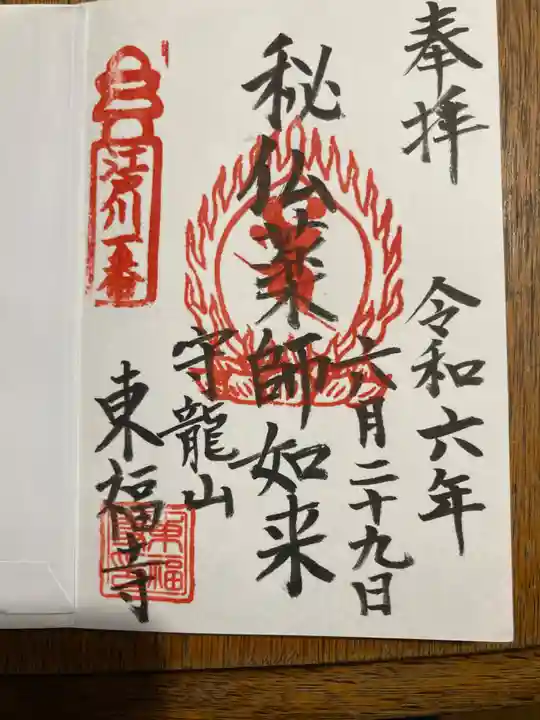 奉拝
令和六年
六月二十九日
秘仏薬師如来
守龍山
東福寺
江戸川一番
東福